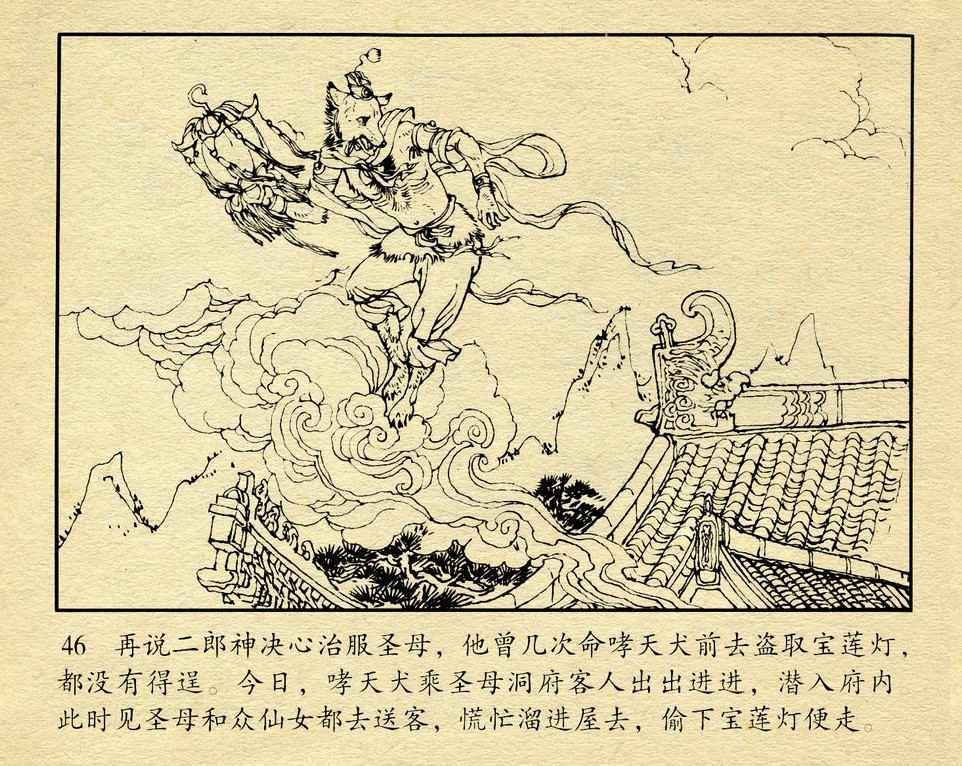 46 再说二郎神决心治服圣母，他曾几次命哮天犬前去盗取宝莲灯，
都没有得逞。今日，哮天犬乘圣母洞府客人出出进进，潜入府内
此时见圣母和众仙女都去送客，慌忙溜进屋去，偷下宝莲灯便走。